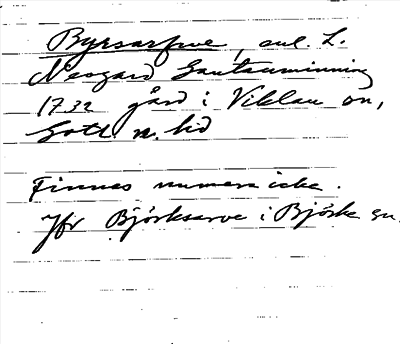 Byrsarfve, enl. L.
Neogard Gautauminning
1732 gård i Viklau sn,
Gotl. n. hd
Finnes numera icke.
Jfr Björksarve i Björke sn.